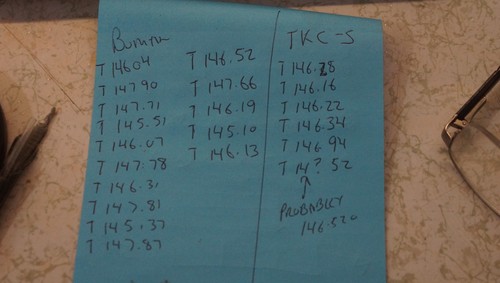 T 146.04
T 147.90
T 147.71
T 145.51
T 146.07
T 147.78
T 146.31
T 147.81
T 145.37
T 147.87
T 146.52
T 147.66
T 146.19
T 145.10
T 146.13
TKC-S
T 146.28
T 146.16
T 146.22
T 146.34
T 146.94
T 14? 52
PROBABLY
146.520